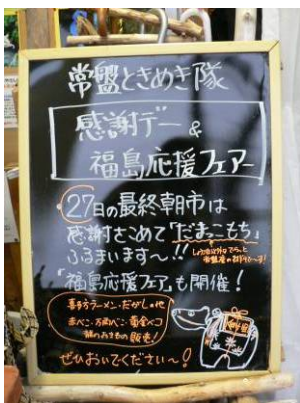 常盤ときめき隊
感謝デー &
福島応援フェアー
27日の最終朝市は
感謝をこめて「だまこもち」
ふるまいます〜!!
「福島応援フェア」も開催!
喜多方ラーメン・だがしの他
赤べこ・万両べこ・黄金ベコ
販売!
ぜひおいでください〜!